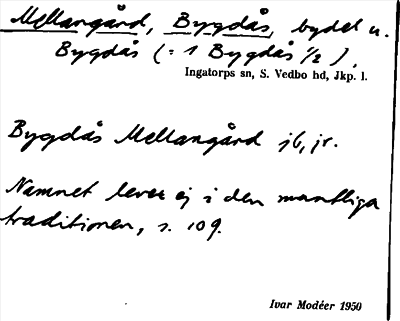 Mellangård, Bygdås, bydel u.
Bygdås (= 1 Bygdås 1/2),
Ingatorps sn, S. Vedbo hd, Jkp. l.
Bygdås Mellangård jb, jr.
Namnet lever ej i den muntliga
traditionen, s. 109.
Ivar Modéer 1950